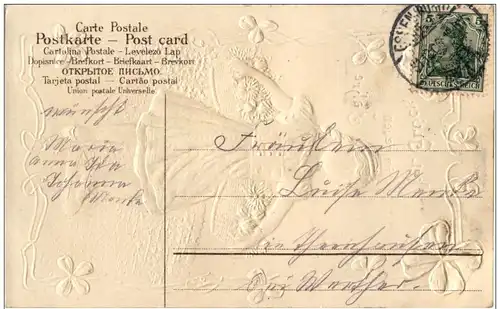 Carte Postale
Postkarte – Post card
Cartolina Postale – Levelező Lap
Dopisnice – Brefkort – Briefkaart – Brevkort
ОТКРЫТОЕ ПИСЬМО.
Tarjeta postal – Cartão postal
Union postale Universelle.
5 5
DEUTSCHES REICH
wünscht
Marie
Anna Ida
Johanna
Fräulein
Luise Menke
in
bei Werther.